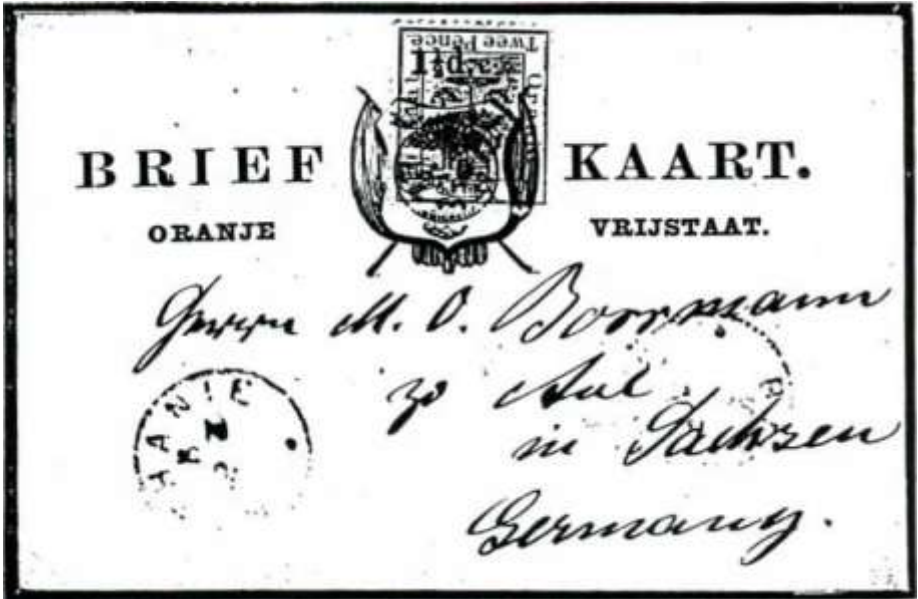 Twee Pence
1½d.
BRIEF KAART.
ORANJE VRIJSTAAT.
Herrn M. O. Boormann
zo Aue
in Sachsen
Germany.